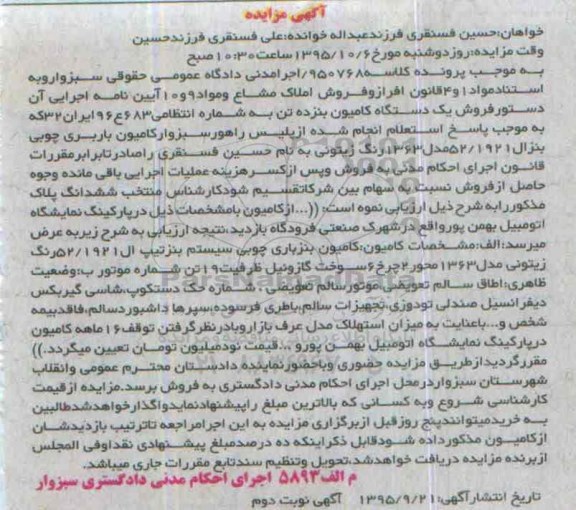 آگهی مزایده
خواهان:حسین فسنقری فرزندعبداله خوانده:علی فسنقری فرزندحسین
وقت مزایده:روزدوشنبه مورخ۱۳۹۵/۱۰/۶ساعت۱۰:۳۰صبح
به موجب پرونده کلاسه۹۵۰۷۶۸/اجرامدنی دادگاه عمومی حقوقی سبزواروبه
استنادمواد۱و۴قانون افرازوفروش املاک مشاع ومواد۹و۱۰آیین نامه اجرایی آن
دستورفروش یک دستگاه کامیون بنزده تن به شماره انتظامی۶۸۳ع۹۶ایران۳۲که
به موجب پاسخ استعلام انجام شده ازپلیس راهورسبزوارکامیون باربری چوبی
بنزال۵۲/۱۹۲۱مدل۱۳۶۳رنگ زیتونی به نام حسین فسنقری راصادرتابرابرمقررات
قانون اجرای احکام مدنی به فروش وپس ازکسرهزینه عملیات اجرایی باقی مانده وجوه
حاصل ازفروش نسبت به سهام بین شرکاتقسیم شودکارشناس منتخب ششدانگ پلاک
مذکوررابه شرح ذیل ارزیابی نموه است: ((...ازکامیون بامشخصات ذیل درپارکینگ نمایشگاه
اتومبیل بهمن پورواقع درشهرک صنعتی فرودگاه بازدید،نتیجه ارزیابی به شرح زیربه عرض
میرسد:الف:مشخصات کامیون:کامیون بنزباری چوبی سیستم بنزتیپ ال۵۲/۱۹۲۱رنگ
زیتونی مدل۱۳۶۳محور۲چرخ۶سوخت گازوئیل ظرفیت۱۹تن شماره موتور ب:وضعیت
ظاهری:اطاق سالم تعویضی،موتورسالم تعویضی، شماره حک دستکوپ،شاسی گیربکس
دیفرانسیل صندلی تودوزی،تجهیزات سالم،باطری فرسوده،سپرها داشبوردسالم،فاقدبیمه
شخص و...باعنایت به میزان استهلاک مدل عرف بازاروبادرنظرگرفتن توقف۱۶ماهه کامیون
درپارکینگ نمایشگاه اتومبیل بهمن پورو ...قیمت نودمیلیون تومان تعیین میگردد.))
مقررگردیدازطریق مزایده حضوری وباحضورنماینده دادستان محترم عمومی وانقلاب
شهرستان سبزواردرمحل اجرای احکام مدنی دادگستری به فروش برسد.مزایده ازقیمت
کارشناسی شروع وبه کسانی که بالاترین مبلغ راپیشنهادنمایدواگذارخواهدشدطالبین
به خریدمیتوانندپنج روزقبل ازبرگزاری مزایده به این اجرامراجعه تاترتیب بازدیدشان
ازکامیون مذکورداده شودقابل ذکراینکه ده درصدمبلغ پیشنهادی نقداوفی المجلس
ازبرنده مزایده دریافت خواهدشد،تحویل وتنظیم سندتابع مقررات جاری میباشد.
م الف۵۸۹۳ اجرای احکام مدنی دادگستری سبزوار
تاریخ انتشارآگهی:۱۳۹۵/۹/۲۱ آگهی نوبت دوم